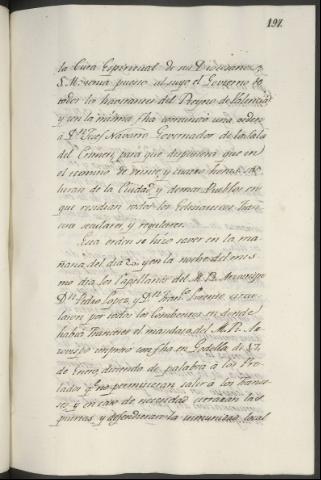 191.
la Cura Espiritual de sus Diocesanos,
S. M. tenia puesto al suyo el Govierno de
todos los havitantes del Reyno de Valencia
y con la misma fha comunicó una orden
a Dn. Josef Navarro Governador de la Sala
del Crimen para que dispusiera que en
el termino de veinte y cuatro horas
de la Ciudad y demas Pueblos en
que residian todos los Fran
seculares, y regulares.
Esta orden se hizo saver en la ma
ñana del dia y en la noche del mis
mo dia los Capellanes del M. R. Arzovispo
Dn. Pedro Lopez, y Dn. Franco. circu
laron por todos los Combentos en donde
habia Franceses el mandato del M. R. Ar
zovispo impreso con fha en Godella de 27
de Enero, diciendo de palabra á los Pre
lados q. no permitieran salir á los France
ses y en caso de necesidad cerraran las
puertas y defendieran la inmunidad local